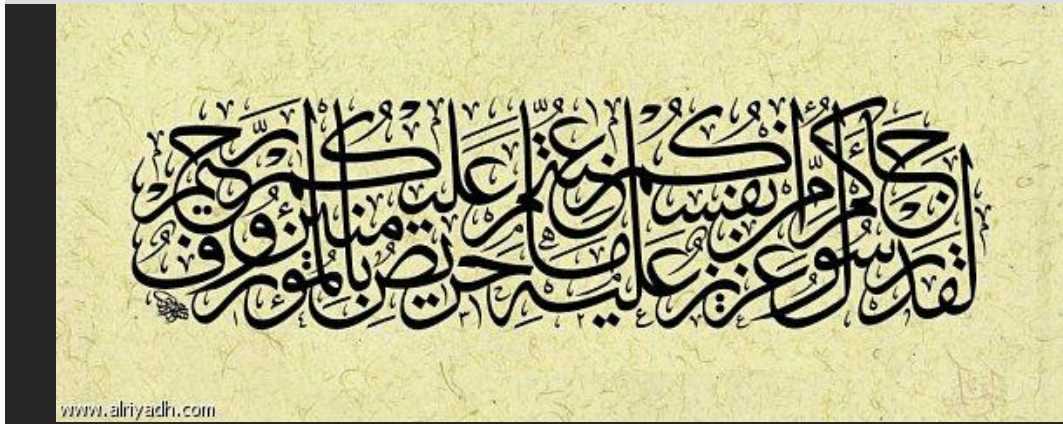 لقد جاءكم رسول من أنفسكم عزيز عليه ما عنتم حريص عليكم بالمؤمنين رءوف رحيم
www.alriyadh.com